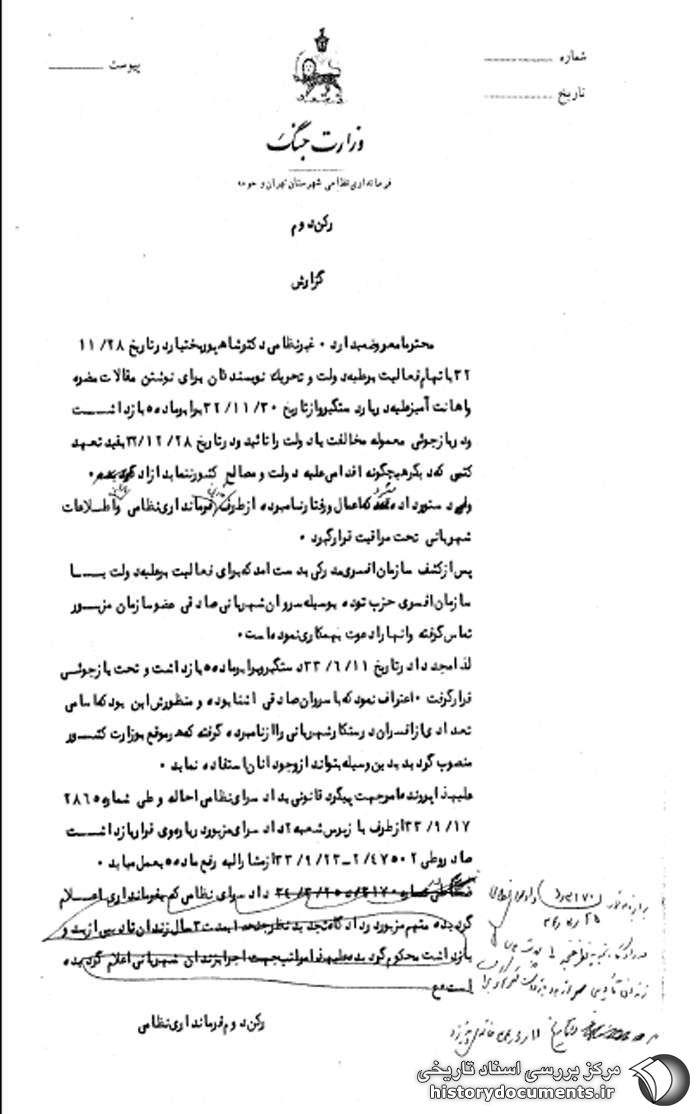 شماره
تاریخ
پیوست
وزارت جنگ
فرمانداری نظامی شهرستان تهران و حومه
رکن دوم
گزارش
محترما معروضمیدارد ۰ غیرنظامی دکتر شاهپور بختیار در تاریخ ۲۸/ ۱۱
۳۲ باتهام فعالیت برعلیه دولت و تحریک نویسندگان برای نوشتن مقالات مضره
واهانت آمیز علیه دربار دستگیر و از تاریخ ۳۰/ ۱۱/ ۳۲ برابر ماده ۵ بازداشت
و در بازجوئی معموله مخالفت با دولت را تائید و در تاریخ ۲۸/ ۱۲/ ۳۲ بقید تعهد
کتبی که دیگر هیچگونه اقدامی علیه دولت و مصالح کشور ننماید آزاد
ولی دستور داده که اعمال و رفتار نامبرده از طرف فرمانداری نظامی و اطلاعات
شهربانی تحت مراقبت قرار گیرد ۰
پس از کشف سازمان افسری مدرکی بدست آمد که برای فعالیت برعلیه دولت با
سازمان افسری حزب توده بوسیله سروان شهربانی صادقی عضو سازمان مزبور
تماس گرفته و آنها را دعوت بهمکاری نموده است ۰
لذا مجددا در تاریخ ۱۱/ ۶/ ۳۳ دستگیر و برابر ماده ۵ بازداشت و تحت بازجوئی
قرار گرفت ۰ اعتراف نمود که با سروان صادقی آشنا بوده و منظورش این بود که اسامی
تعدادی از افسران درستکار شهربانی را از نامبرده گرفته که هر موقع بوزارت کشور
منصوب گردید بدین وسیله بتواند از وجود آنان استفاده نماید ۰
علیهذا پرونده امر جهت پیگرد قانونی بدادسرای نظامی احاله و طی شماره ۲۸۶۵
۱۷/ ۹/ ۳۳ از طرف بازپرس شعبه ۲ دادسرای مزبور درباره وی قرار بازداشت
صادر و طی ۴۷۵۰۲/ ۲ـ ۲۳/ ۹/ ۳۳ از مشارالیه رفع ماده ۵ بعمل میاید ۰
دادسرای نظامی که بفرمانداری اعلام
گردیده متهم مزبور در دادگاه تجدید نظر بمدت ۳ سال زندان تادیبی از بدو
بازداشت محکوم گردیده علیهذا مراتب جهت اجرا بزندان شهربانی اعلام گردیده
است
رکن دوم فرمانداری نظامی
مرکز بررسی اسناد تاریخی
historydocuments.ir